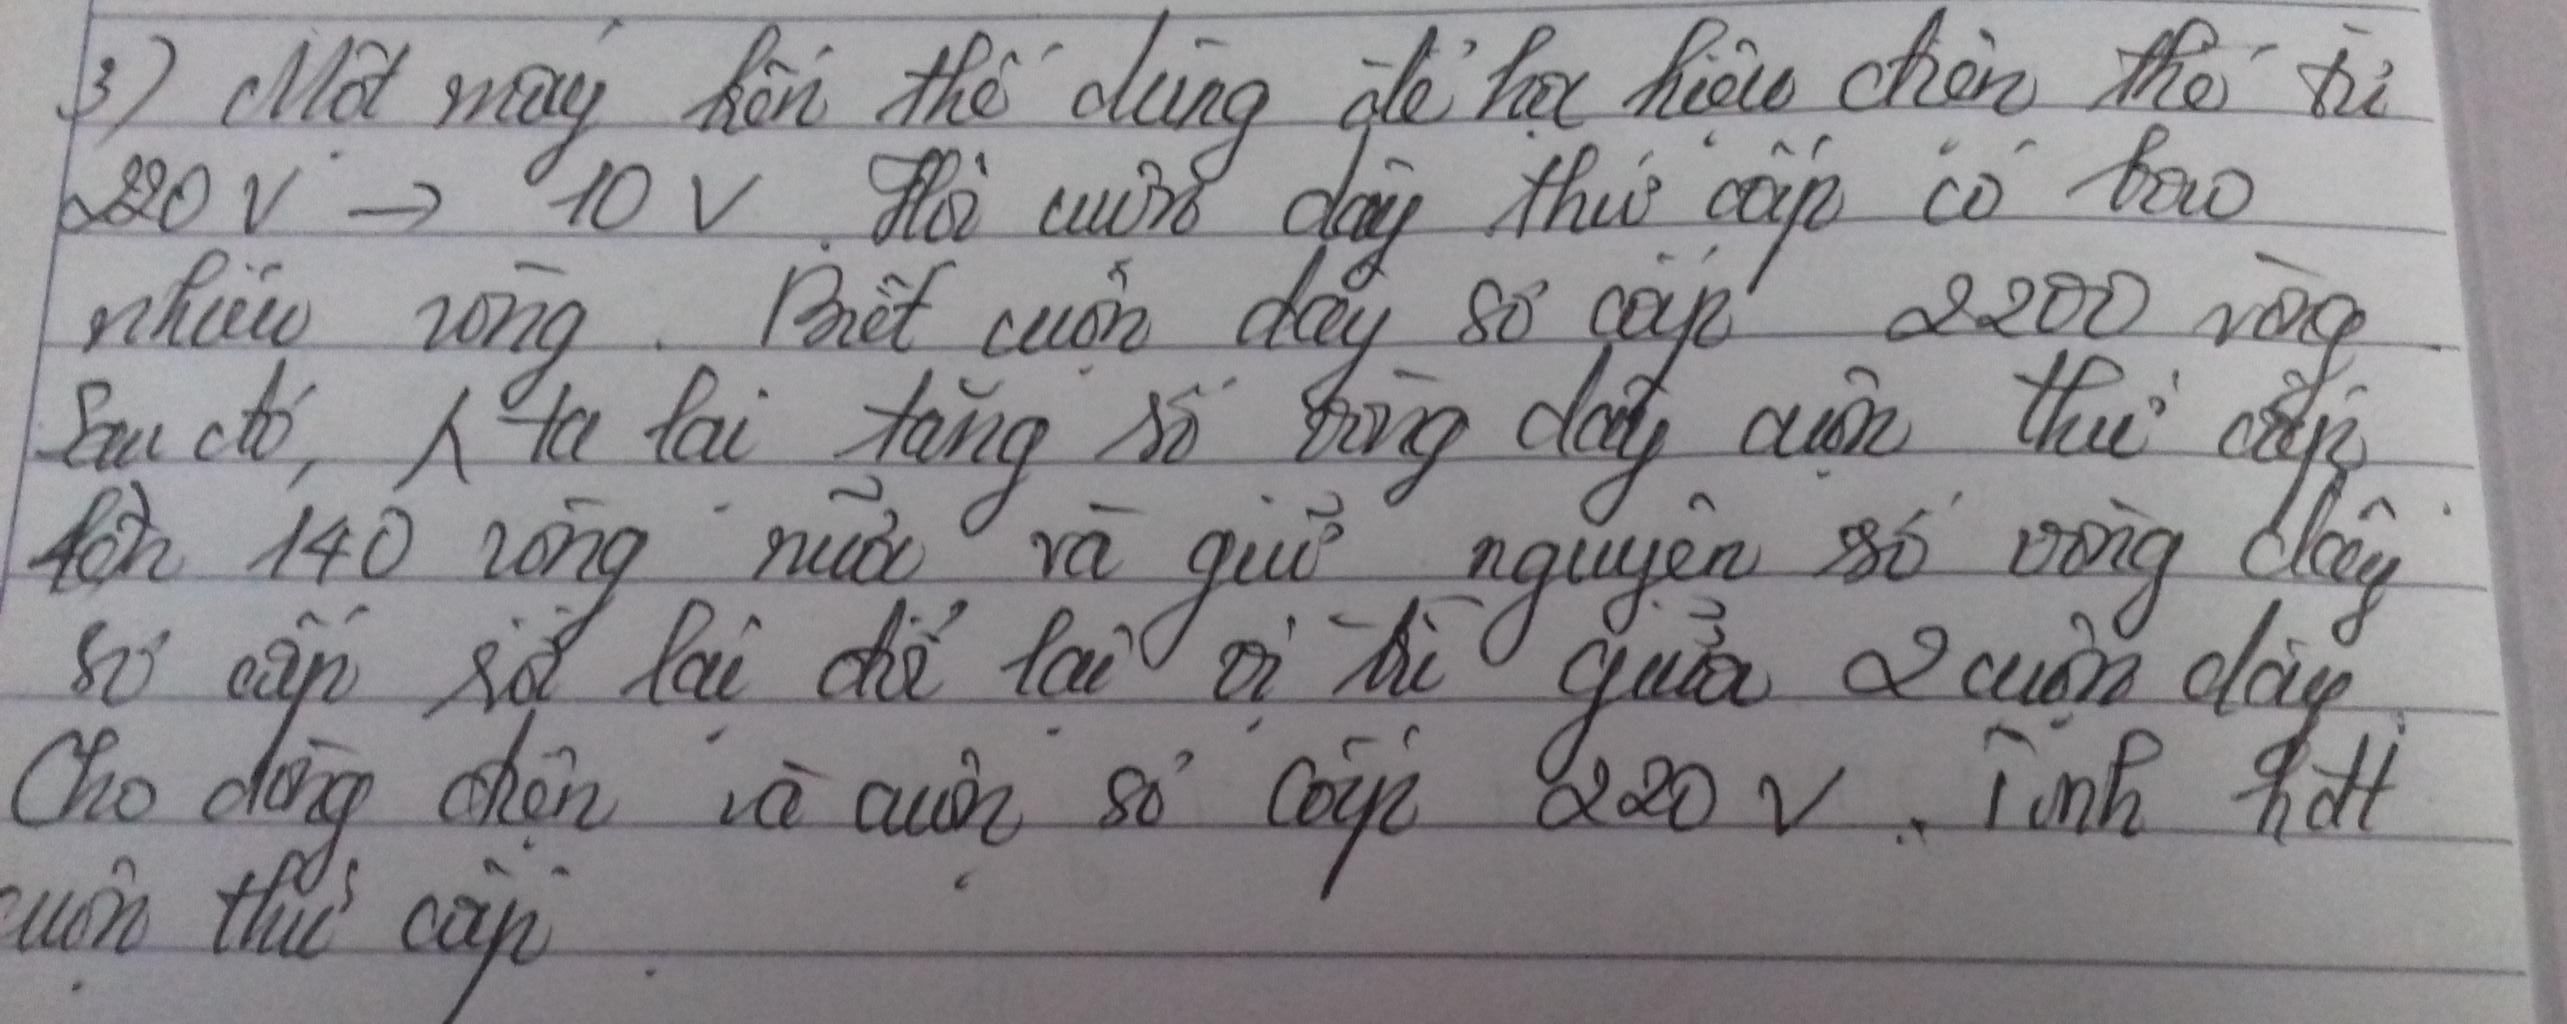 3) Một máy biến thế dùng để hạ hiệu điện thế từ
220 V → 10 V. Hỏi cuộn dây thứ cấp có bao
nhiêu vòng. Biết cuộn dây sơ cấp 2200 vòng
Sau đó, λ ta lại tăng số vòng dây cuộn thứ cấp
lên 140 vòng nữa và giữ nguyên số vòng dây
sơ cấp lại để lại vị trí giữa 2 cuộn dây.
Cho dòng điện và cuộn sơ cấp 220 V. Tính hđt
cuộn thứ cấp.